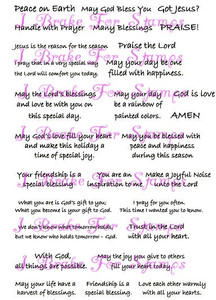 Peace on Earth May God Bless You Got Jesus?
Handle with Prayer Many Blessings PRAISE!
Jesus is the reason for the season Praise the Lord
I pray that in a very special way
the Lord will comfort you today.
May your day be one
filled with happiness.
May the Lord's blessings
and love be with you on
this special day.
May your day
be a rainbow of
painted colors.
God is love
AMEN
May God's love fill your heart
and make this holiday a
time of special joy.
May you be blessed with
peace and happiness
during this season
Your friendship is a
special blessing
You are an
inspiration to me
Make a Joyful Noise
unto the Lord
What you are is God's gift to you;
What you become is your gift to God.
I pray for you often,
This time I wanted you to know.
We don't know what tomorrow holds,
but we know who holds tomorrow - God.
Trust in the Lord
with all your heart.
With God,
all things are possible.
May the joy you give to others
fill your heart today.
May your life have a
harvest of blessings.
Friendship is a
special blessing.
Love each other warmly
with all your heart.
I Brake For Stamps
I Brake For Stamps
I Brake For Stamps
I Brake For Stamps
I Brake For Stamps